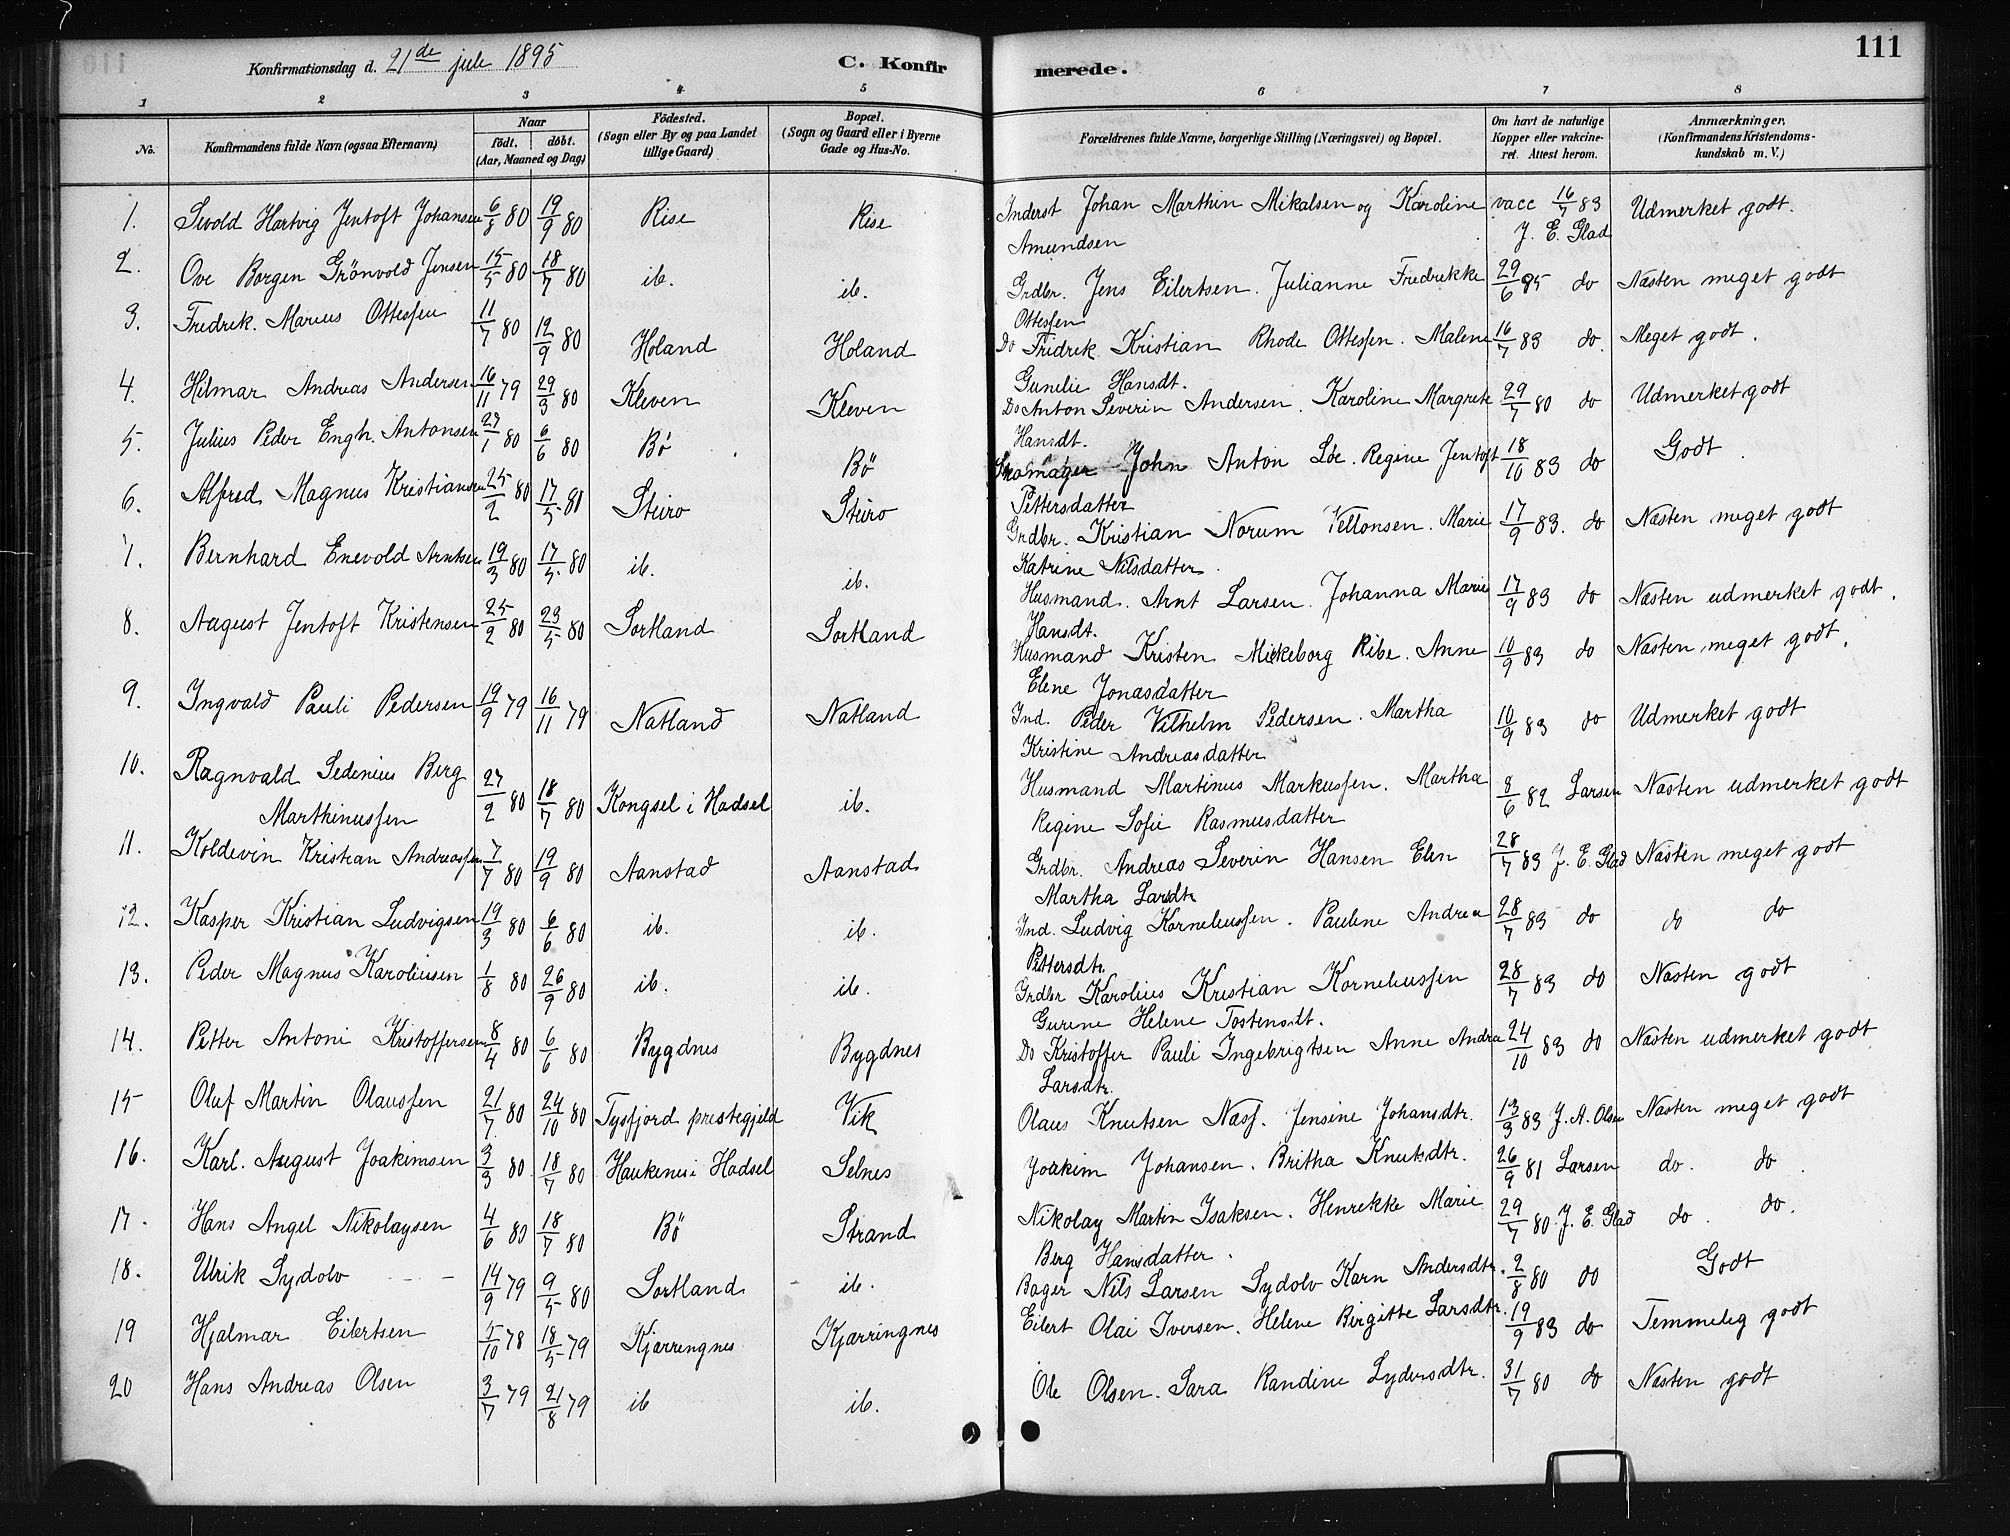 Konfirmationsdag d. 21de juli 1895
C. Konfirmerede.
111
1 2 3 4 5 6 7 8
No. Konfirmandens fulde Navn (ogsaa Efternavn) Naar födt. döbt. (Aar, Maaned og Dag) Födested. (Sogn eller By og paa Landet tillige Gaard) Bopæl. (Sogn og Gaard eller i Byerne Gade og Hus-No. Forældrenes fulde Navne, borgerlige Stilling (Næringsvei) og Bopæl. Om havt de naturlige Kopper eller vakcineret. Attest herom. Anmærkninger, (Konfirmandens Kristendomskundskab m. V.)
1. Sivold Hartvig Jentoft Johansen 6/8 80 19/9 80 Rise Rise Inderst Johan Marthin Mikalsen og Karoline Amundsen vacc 16/7 83 J. E. Glad Udmerket godt.
2. Ove Borgen Grönvold Jensen 15/5 80 18/7 80 ib. ib. Grdbr. Jens Eilertsen. Julianne Fredrekke Ottessen 29/6 85 do Næsten meget godt
3. Fredrek. Marius Ottessen 11/7 80 12/9 80 Holand Holand Do Fridrek Kristian Rhode Ottessen. Malene Gunelie Hansdt. 16/7 83 do. Meget godt.
4. Hilmar Andreas Andersen 16/11 79 29/3 80 Kleven Kleven Do Anton Severin Andersen. Karoline Margrete Hansdt. 29/7 80 do Udmerket godt
5. Julius Peder Engh. Antonsen 27/1 80 6/6 80 Bö Bö Skomager John Anton Löe. Regine Jentoft Pettersdatter 18/10 83 do Godt
6. Alfred Magnus Kristiansen 25/2 80 17/5 80 Steiro Steiro Grdbr. Kristian Norum Veltonsen. Marie Katrine Nilsdatter. 17/9 83. do Næsten meget godt
7. Bernhard Enevold Arntsen 19/3 80 17/5 80 ib. ib. Husmand. Arnt Larsen. Johanna Marie Hansdt. 17/9 83 do Næsten udmerket godt.
8. August Jentoft Kristensen 25/2 80 23/5 80 Sortland Sortland Husmand Kristen Mikkeborg Ribe. Anne Elene Jonasdatter 10/9 83 do Næsten meget godt.
9. Ingvald Pauli Pedersen 19/9 79 16/11 79 Natland Natland Ind. Peder Vilhelm Pedersen. Martha Kristine Andreasdatter 10/9 83 do Udmerket godt
10. Ragnvald Sedenius Berg Marthinussen 27/2 80 18/7 80 Kongsel i Hadsel ib. Husmand Martinus Markussen. Martha Regine Sofie Rasmusdatter 8/6 82 Larsen Næsten udmerket godt
11. Koldevin Kristian Andreassen 7/7 80 19/9 80 Aanstad Aanstad Grdbr. Andreas Severin Hansen Elen Martha Larsdtr 28/7 83 J. E. Glad Næsten meget godt
12. Kasper Kristian Ludvigsen 19/3 80 6/6 80 ib. ib. Ind. Ludvig Korneliussen. Paulene Andrea Pettersdtr. 28/7 83 do do do
13. Peder Magnus Karoliusen 1/8 80 26/9 80 ib. ib. Grdbr Karolius Kristian Korneliussen Gurine Helene Tostensdt. 28/7 83 do Næsten godt
14. Petter Antoni Kristoffersen 8/4 80 6/6 80 Bygdnes Bygdnes Do Kristoffer Pauli Ingebrigtsen Anne Andrea Larsdtr. 24/10 83 do Næsten udmerket godt.
15 Oluf Martin Olaussen 21/7 80 24/10 80 Tysfjord prestegjeld Vik Olaus Knutsen Næss. Jensine Johansdtr. 13/3 83 J. A. Olsen Næsten meget godt
16. Karl. August Joakimsen 3/3 80 18/7 80 Haukenes i Hadsel Selnes Joakim Johansen. Britha Knutsdtr. 26/9 81 Larsen do. do.
17. Hans Angel Nikolaysen 4/6 80 18/7 80 Bö Strand Nikolay Martin Isaksen. Henrekke Marie Berg Hansdatter. 29/7 80. J. E. Glad do. do.
18. Ulrik Sydolv 14/9 79 9/5 80 Sortland ib. Bager Nils Larsen Sydolv Karn Andersdtr. 2/8 80 do Godt
19 Hjalmar Eilertsen 5/10 78 18/5 79 Kjærringnes Kjærringnes Eilert Olai Iversen. Helene Birgitte Larsdtr. 19/9 83 do Temmelig godt
20 Hans Andreas Olsen 3/7 79 21/8 79 ib ib. Ole Olsen. Sara Randine Lydersdtr. 31/7 80 do Næsten godt